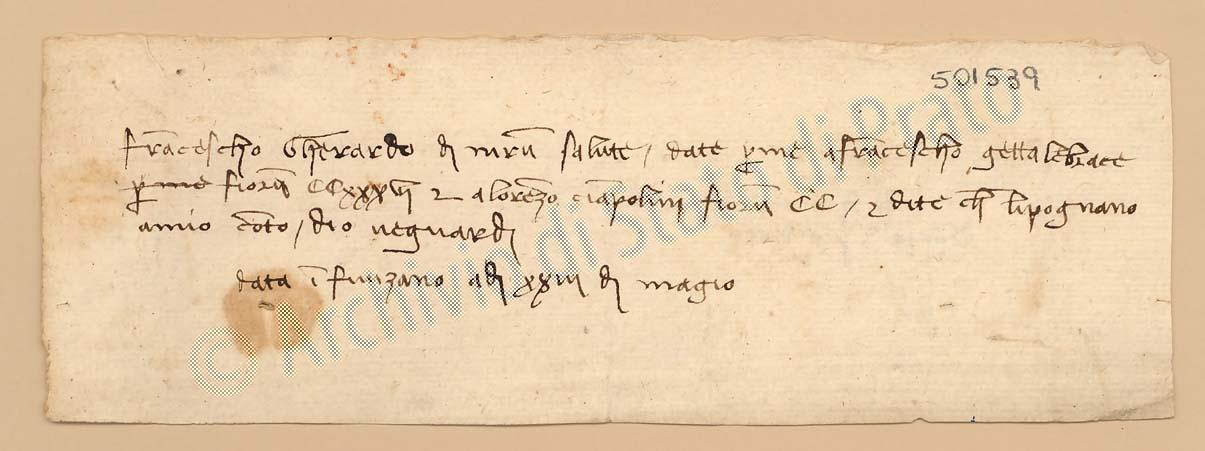 501539
francescho Gherardo di nrū salute / date p me a franceschо gettalebrace
p me fiorū CCxxxvii e a lorenzo ciapolini fiorū CC / e dite ch lipognano
amio coto / dio veguardi
data ī funzano adi xxiii di magio
© Archivio di Stato di Prato